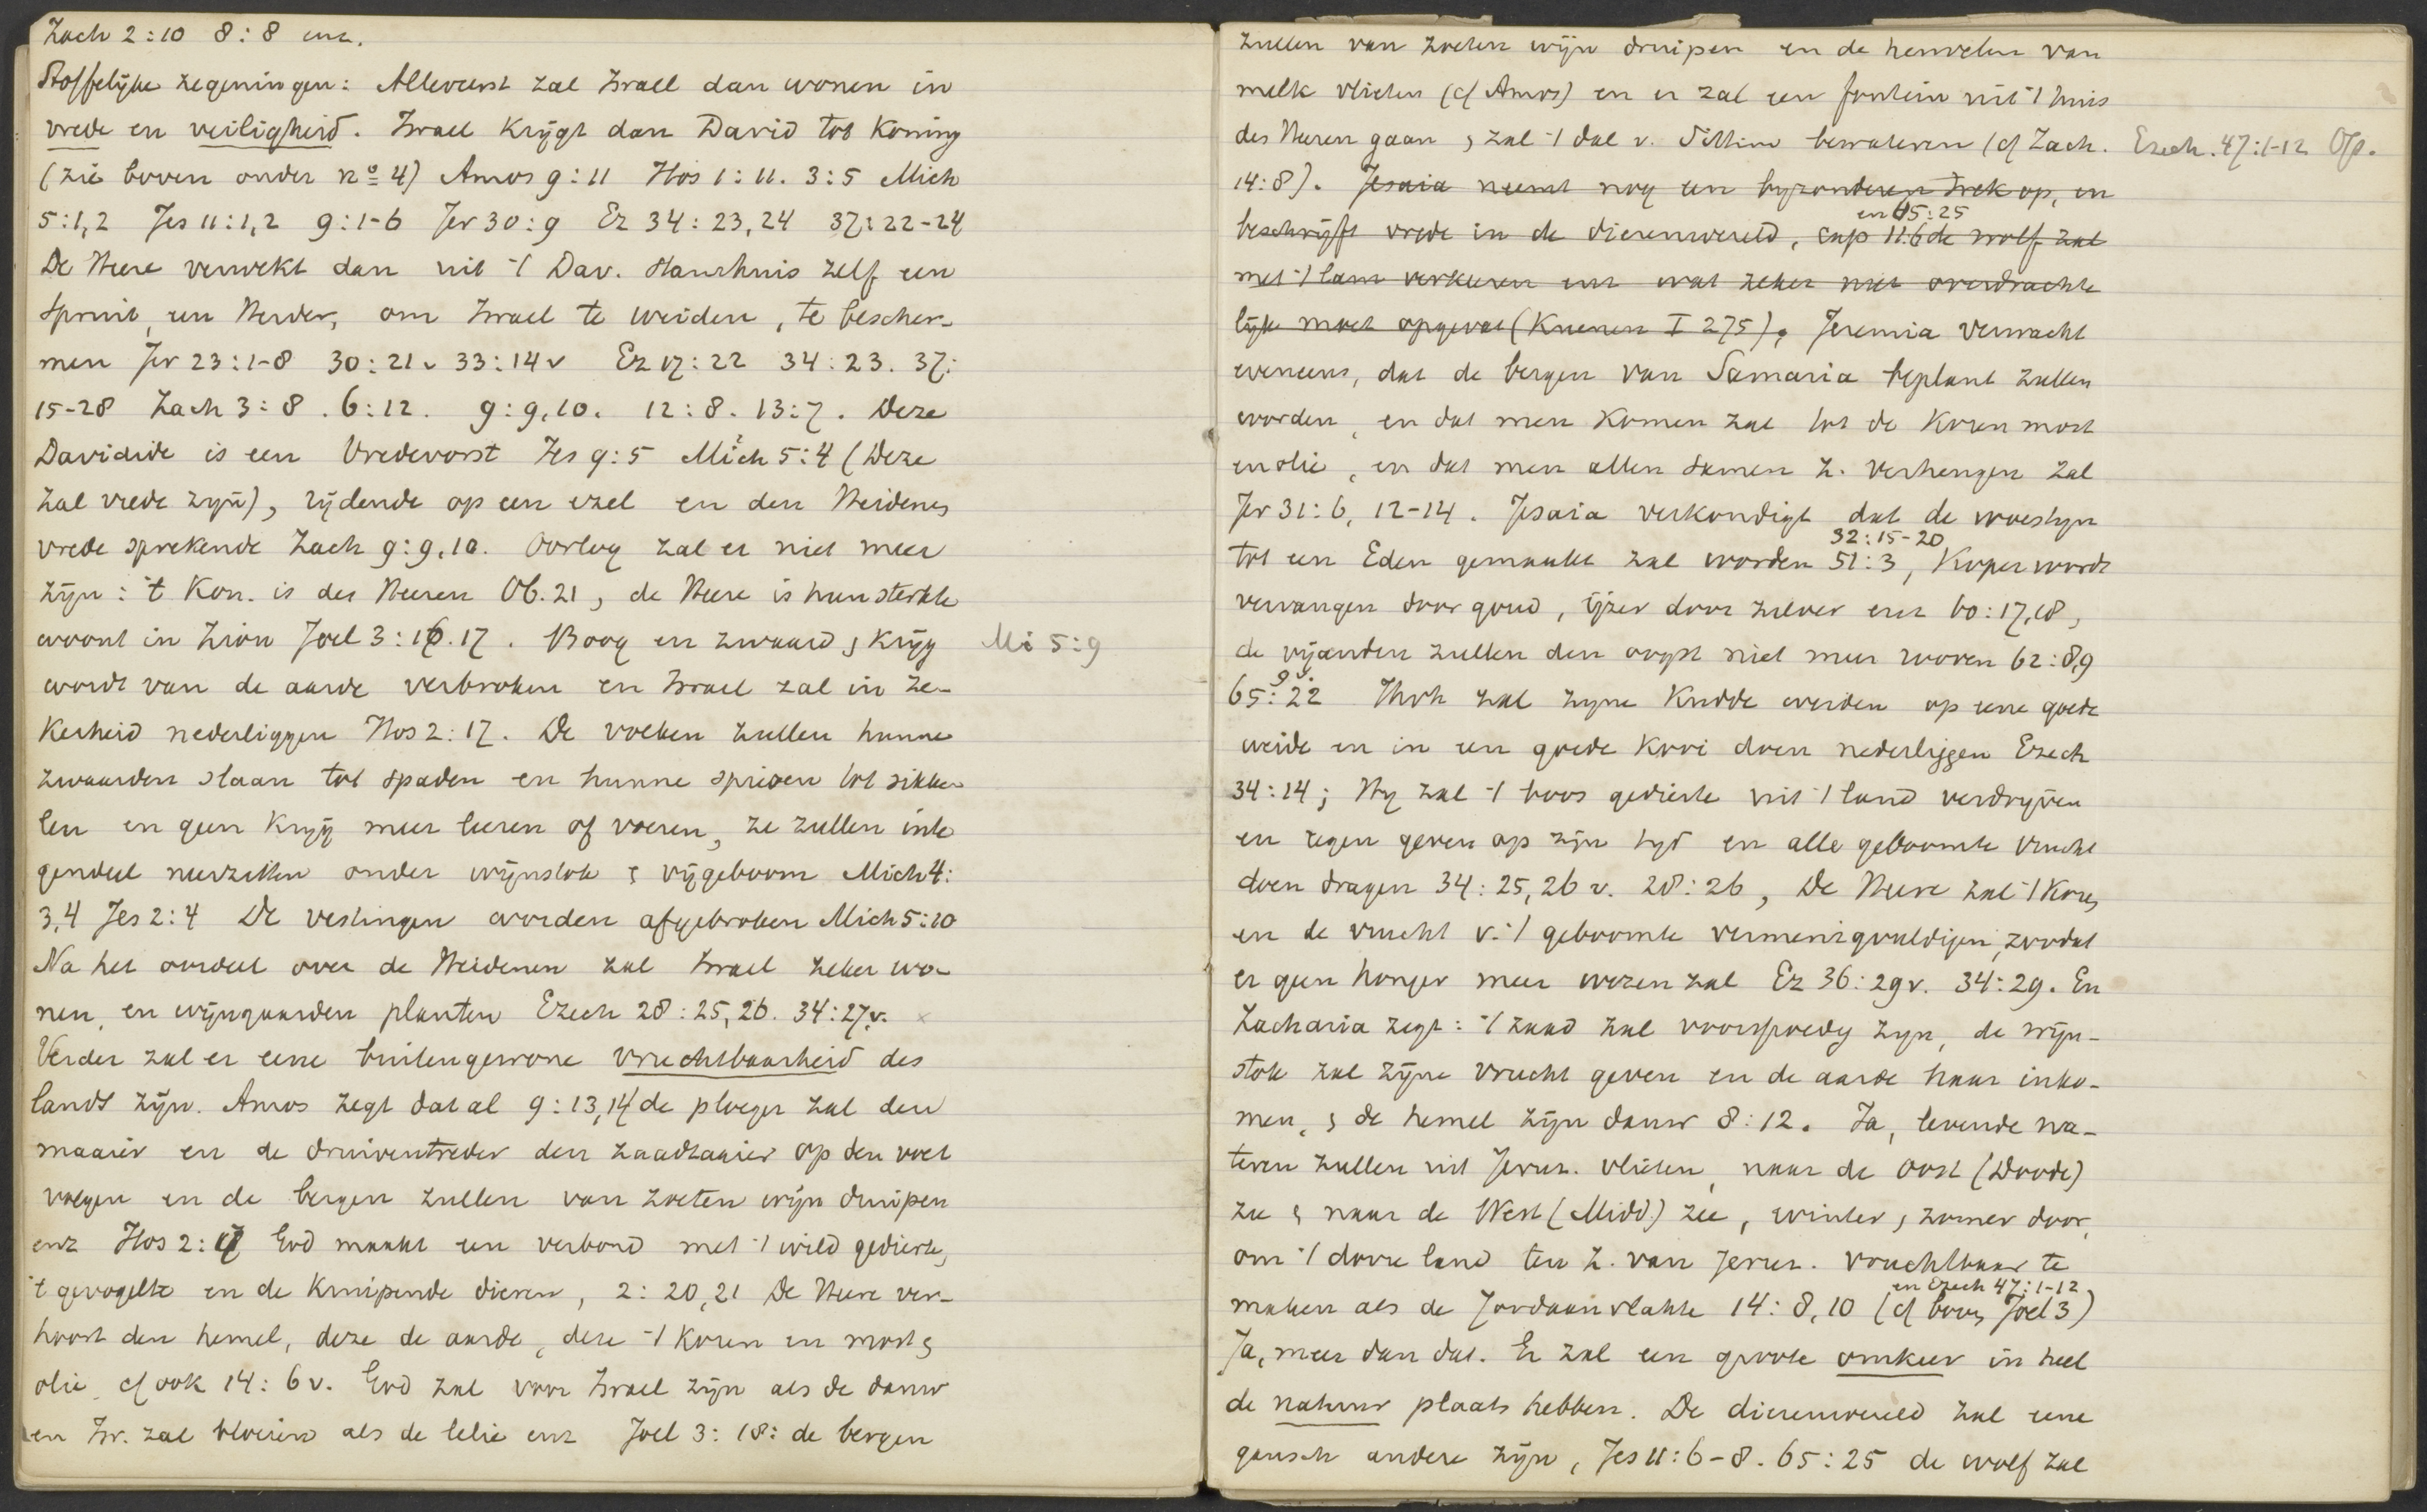 Zach 2:10 8:8 enz.
Stoffelijke zegeningen: Allereerst zal Israel dan wonen in
vrede en veiligheid. Israel krijgt dan David tot Koning
(zie boven onder no 4) Amos 9:11 Hos 1:11. 3:5 Mich
5:1,2 Jes 11:1,2 9:1-6 Jer 30:9 Ez 34:23,24 37:22-24
De Heere verwekt dan uit 't Dav. Stamhuis zelf een
Spruit, een Herder, om Israel te weiden, te bescher-
men Jer 23:1-8 30:21v 33:14v Ez 17:22 34:23. 37:
15-28 Zach 3:8. 6:12. 9:9,10. 12:8. 13:7. Deze
Davidide is een Vredevorst Jes 9:5 Mich 5:4 (Deze
zal vrede zijn), rijdende op een ezel en den Heidenen
vrede sprekende Zach 9:9,10. Oorlog zal er niet meer
zijn: 't Kon. is des Heeren Ob. 21, de Heere is hun sterkte
woont in Zion Joel 3:16.17. Boog en zwaard & krijg Mi 5:9
wordt van de aarde verbroken en Israel zal in ze-
kerheid nederliggen Hos 2:17. De volken zullen hunne
zwaarden slaan tot spaden en hunne spiesen tot sikke
len en geen krijg meer leeren of voeren, ze zullen inte
gendeel neerzitten onder wijnstok & vijgeboom Mich 4:
3,4 Jes 2:4 De vestingen worden afgebroken Mich 5:10
Na het oordeel over de Heidenen zal Israel zeker wo-
nen, en wijngaarden planten Ezech 28:25,26. 34:27v. x
Verder zal er eene buitengewone vruchtbaarheid des
lands zijn. Amos zegt dat al 9:13,14 de ploeger zal den
maaier en de druiventreder den zaadzaaier op den voet
volgen en de bergen zullen van zoeten wijn druipen
enz Hos 2:17 God maakt een verbond met 't wild gedierte,
't gevogelte en de kruipende dieren, 2:20,21 De Heere ver-
hoort den hemel, deze de aarde, deze 't koren en most &
olie, cf ook 14:6v. God zal voor Israel zijn als de dauw
en Isr. zal bloeien als de lelie enz Joel 3:18: de bergen
zullen van zoeten wijn druipen en de heuvelen van
melk vlieten (cf Amos) en er zal een fontein uit 't huis
des Heeren gaan & zal 't dal v. Sittim bewateren (cf Zach. Ezech. 47:1-12 Op.
14:8). Jesaia neemt nog een byzonderen trek op, en
en 65:25
beschrijft vrede in de dierenwereld, cap 11:6 de wolf zal
met 't lam verkeeren enz wat zeker niet overdrachte
lijk moet opgevat (Kuenen I 275), Jeremia verwacht
eveneens, dat de bergen van Samaria beplant zullen
worden, en dat men komen zal tot de koren most
en olie, en dat men allen samen z. verheugen zal
Jer 31:6, 12-14. Jesaia verkondigt dat de woestyn
32:15-20
tot een Eden gemaakt zal worden 51:3, Koper wordt
vervangen door goud, ijzer door zilver enz 60:17,18,
de vijanden zullen den oogst niet meer rooven 62:8,9
65:22 Jhvh zal zijne kudde weiden op eene goede
weide en in een goede kooi doen nederliggen Ezech
34:14; Hy zal 't boos gedierte uit 't land verdrijven
en regen geven op zijn tyd en alle geboomte vrucht
doen dragen 34:25,26v. 28:26, De Heere zal 't koren
en de vrucht v. 't geboomte vermenigvuldigen, zoodat
er geen honger meer wezen zal Ez 36:29v. 34:29. En
Zacharia zegt: 't zaad zal voorspoedig zyn, de wijn-
stok zal zijne vrucht geven en de aarde haar inko-
men, & de hemel zijn dauw 8:12. Ja, levende wa-
teren zullen uit Jeruz. vlieten, naar de Oost (Doode)
zee & naar de West (Midd.) zee, winter & zomer door,
om 't dorre land ten Z. van Jeruz. vruchtbaar te
en Ezech 47:1-12
maken als de Jordaanvlakte 14:8,10 (cf boven Joel 3)
Ja, meer dan dat. Er zal een groote omkeer in heel
de natuur plaats hebben. De dierenwereld zal eene
gansch andere zijn, Jes 11:6-8. 65:25 de wolf zal